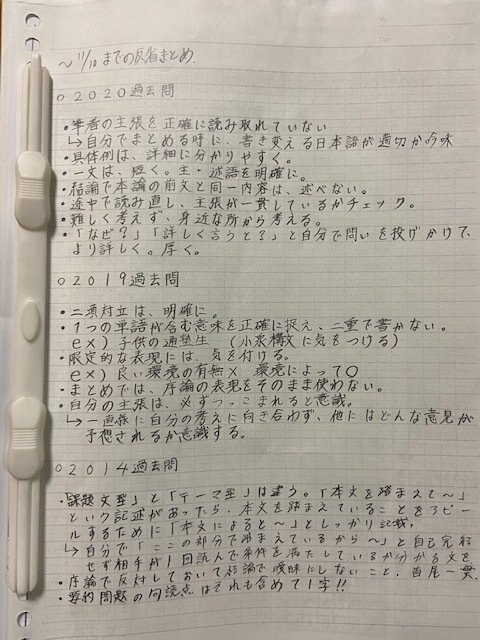 ~11/10までの反省まとめ
○2020過去問
・筆者の主張を正確に読み取れていない
↳自分でまとめる時に、書き変える日本語が適切か吟味
・具体例は、詳細に分かりやすく。
・一文は、短く。主・述語を明確に。
・結論で本論の前文と同一内容は、述べない。
・途中で読み直し、主張が一貫しているかチェック。
・難しく考えず、身近な所から考える。
・「なぜ?」「詳しく言うと?」と自分で問いを投げかけて、
より詳しく。厚く。
○2019過去問
・二項対立は、明確に。
・1つの単語が含む意味を正確に捉え、二重で書かない。
ex)子供の通塾生 (小泉構文に気をつける)
・限定的な表現には、気を付ける。
ex)良い環境の有無× 環境によって○
・まとめでは、序論の表現をそのまま使わない。
・自分の主張は、必ずつっこまれると意識。
↳一直線に自分の考えに向き合わず、他にはどんな意見が
予想されるか意識する。
○2014過去問
・「課題文型」と「テーマ型」は違う。「本文を踏まえて〜」
という記述があったら、本文を踏まえていることをアピー
ルするために「本文によると〜」としっかり記載。
↳自分で「ここの部分で踏まえているから〜」と自己完結
せず相手が1回読んで条件を満たしているか分かる文を
・序論で反対しておいて結論で曖昧にしないこと。首尾一貫。
・要約問題の句読点はそれも含めて1字!!